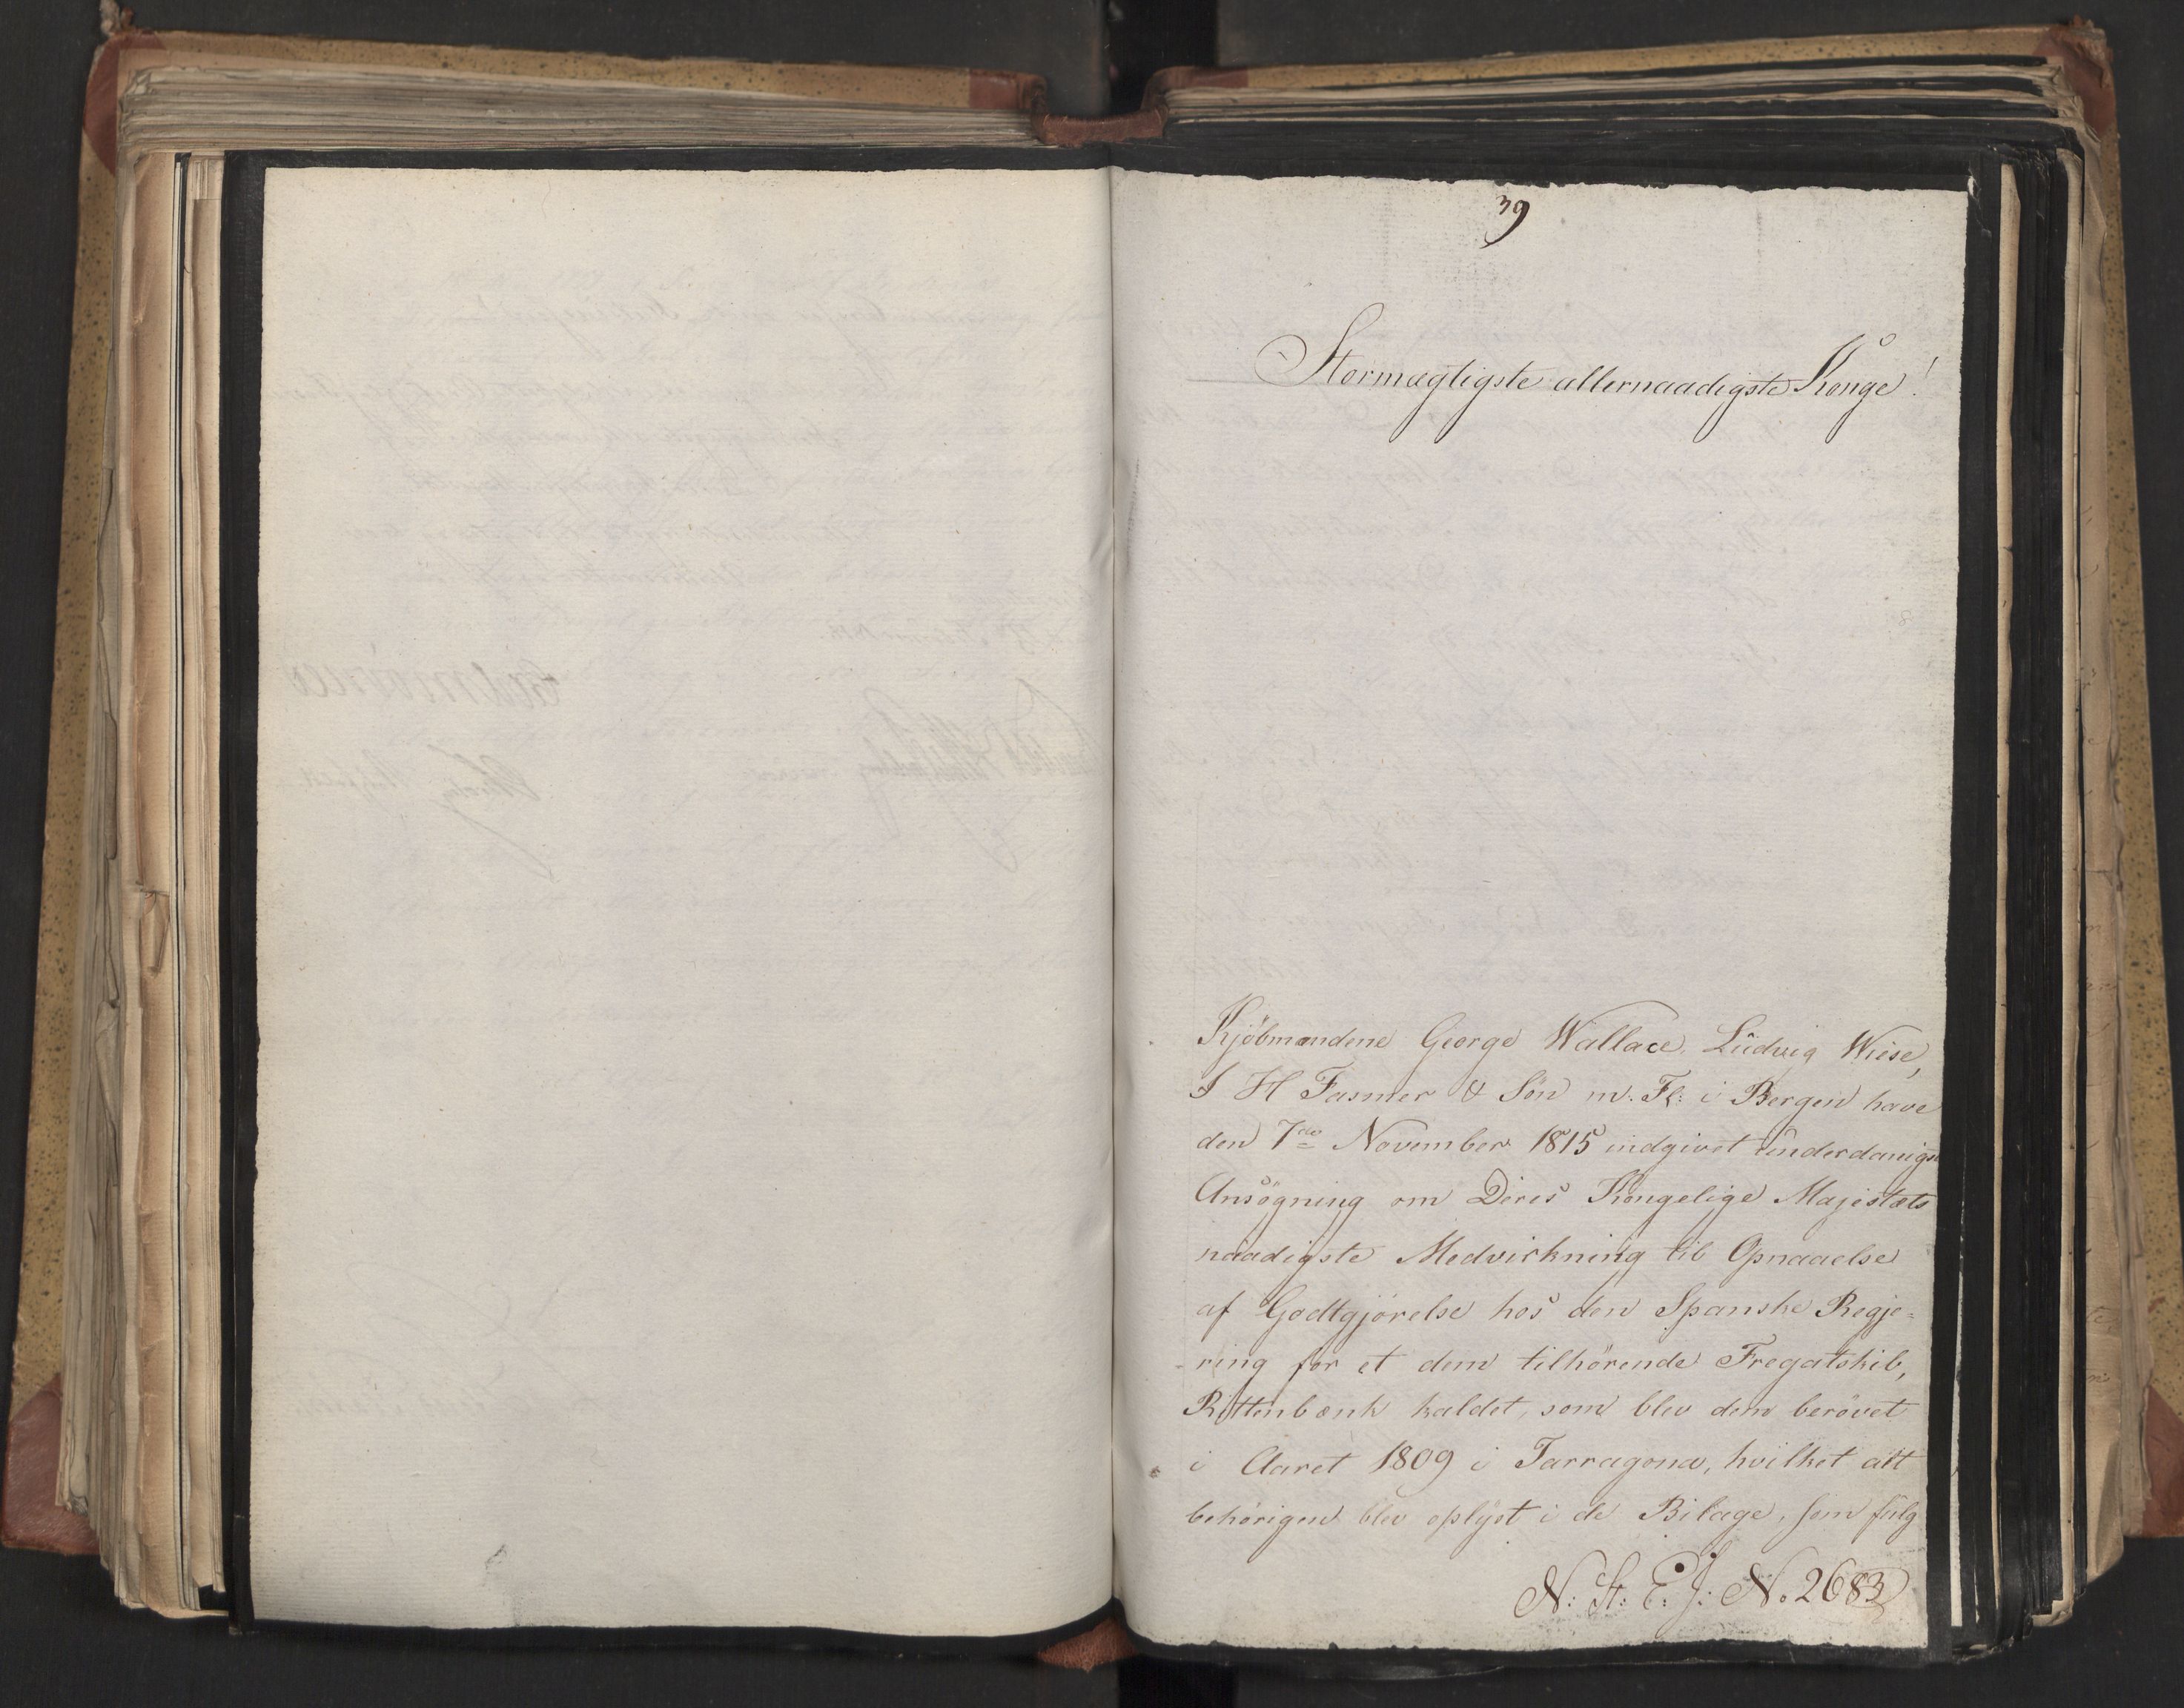 39
Stormægtigste allernaadigste Konge!
Kjöbmændene George Wallace, Ludvig Wiese,
J H Fasmer & Sön m: Fl: i Bergen have
den 7de November 1815 indgivet underdanigst
Ansögning om Deres Kongelige Majestæts
naadigste Medvirkning til Opnaaelse
af Godtgjörelse hos den Spanske Regje-
ring for et dem tilhörende Fregatskib,
Rittenbænk kaldet, som blev dem berövet
i Aaret 1809 i Tarragona, hvilket alt
behörigen blev oplyst i de Bilage, som fulg
N: St: E: J: No. 2683